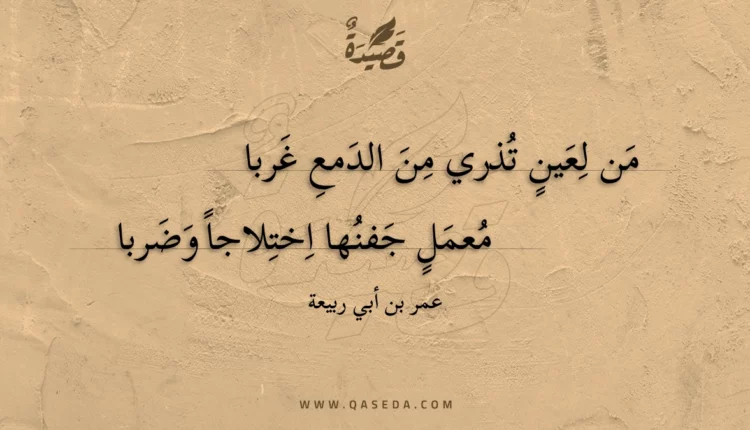 قَصِيْدَةٌ
مَن لِعَينٍ تُذري مِنَ الدَمعِ غَربا
مُعمَلٍ جَفنُها اِختِلاجاً وَضَربا
عمر بن أبي ربيعة
WWW.QASEDA.COM